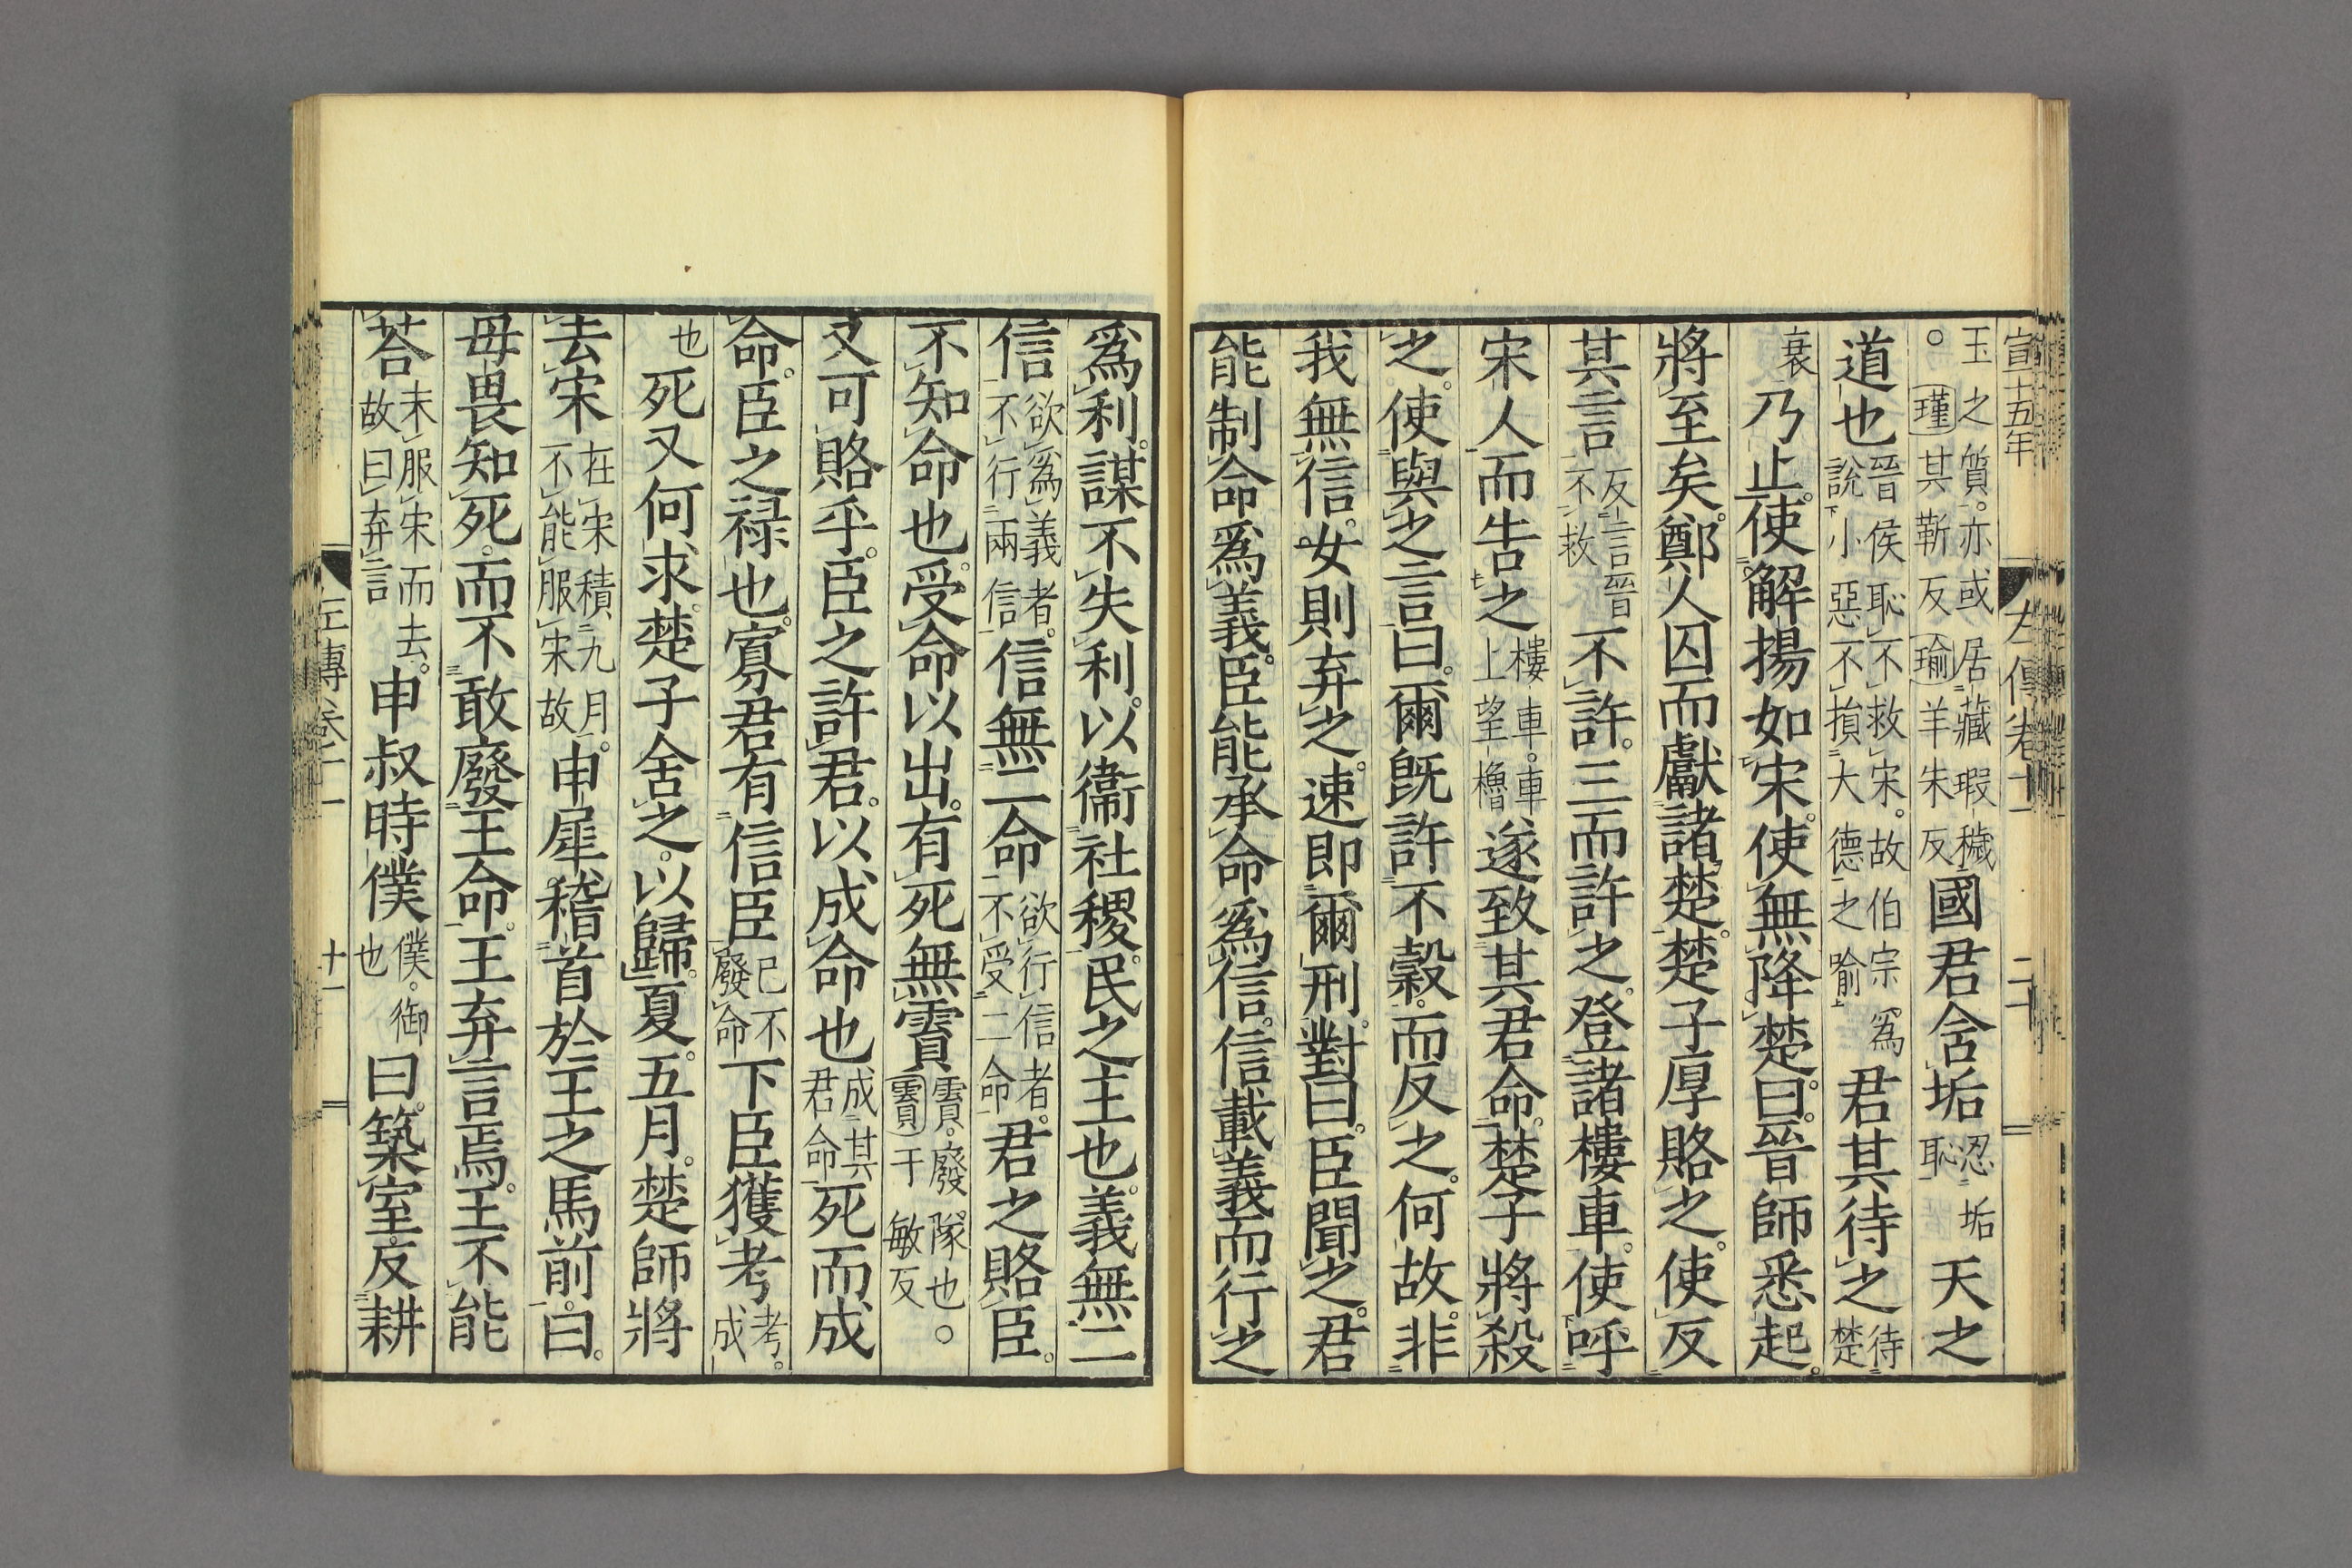 宣十五年
左傳卷十一
玉之質。亦或居藏瑕穢
。瑾其靳反瑜羊朱反國君含垢忍垢恥天之
道也晉侯恥不救宋。故伯宗爲說小惡不損大德之喻君其待之待楚
衰乃止。使解揚如宋。使無降楚。曰。晉師悉起。
將至矣。鄭人囚而獻諸楚。楚子厚賂之。使反
其言反言晉不救不許。三而許之。登諸樓車。使呼
宋人而告之樓車。車上望櫓遂致其君命。楚子將殺
之。使與之言曰。爾旣許不穀。而反之。何故。非
我無信。女則弃之。速即爾刑。對曰。臣聞之。君
能制命爲義。臣能承命爲信。信載義而行之
爲利。謀不失利。以衞社稷。民之主也。義無二
信欲爲義者。不行兩信信無二命欲行信者。不受二命君之賂臣。
不知命也。受命以出。有死無霣霣。廢隊也。霣于敏反
又可賂乎。臣之許君。以成命也成其君命死而成
命。臣之禄也。寡君有信臣已不廢命下臣獲考考。成
也死又何求。楚子舍之。以歸。夏。五月。楚師將
去宋在宋積九月。不能服宋故申犀。稽首於王之馬前。曰。
毋畏知死。而不敢廢王命。王弃言焉。王不能
荅未服宋而去。故曰弃言申叔時僕僕。御也曰。築室。反耕
左傳卷十一
十一